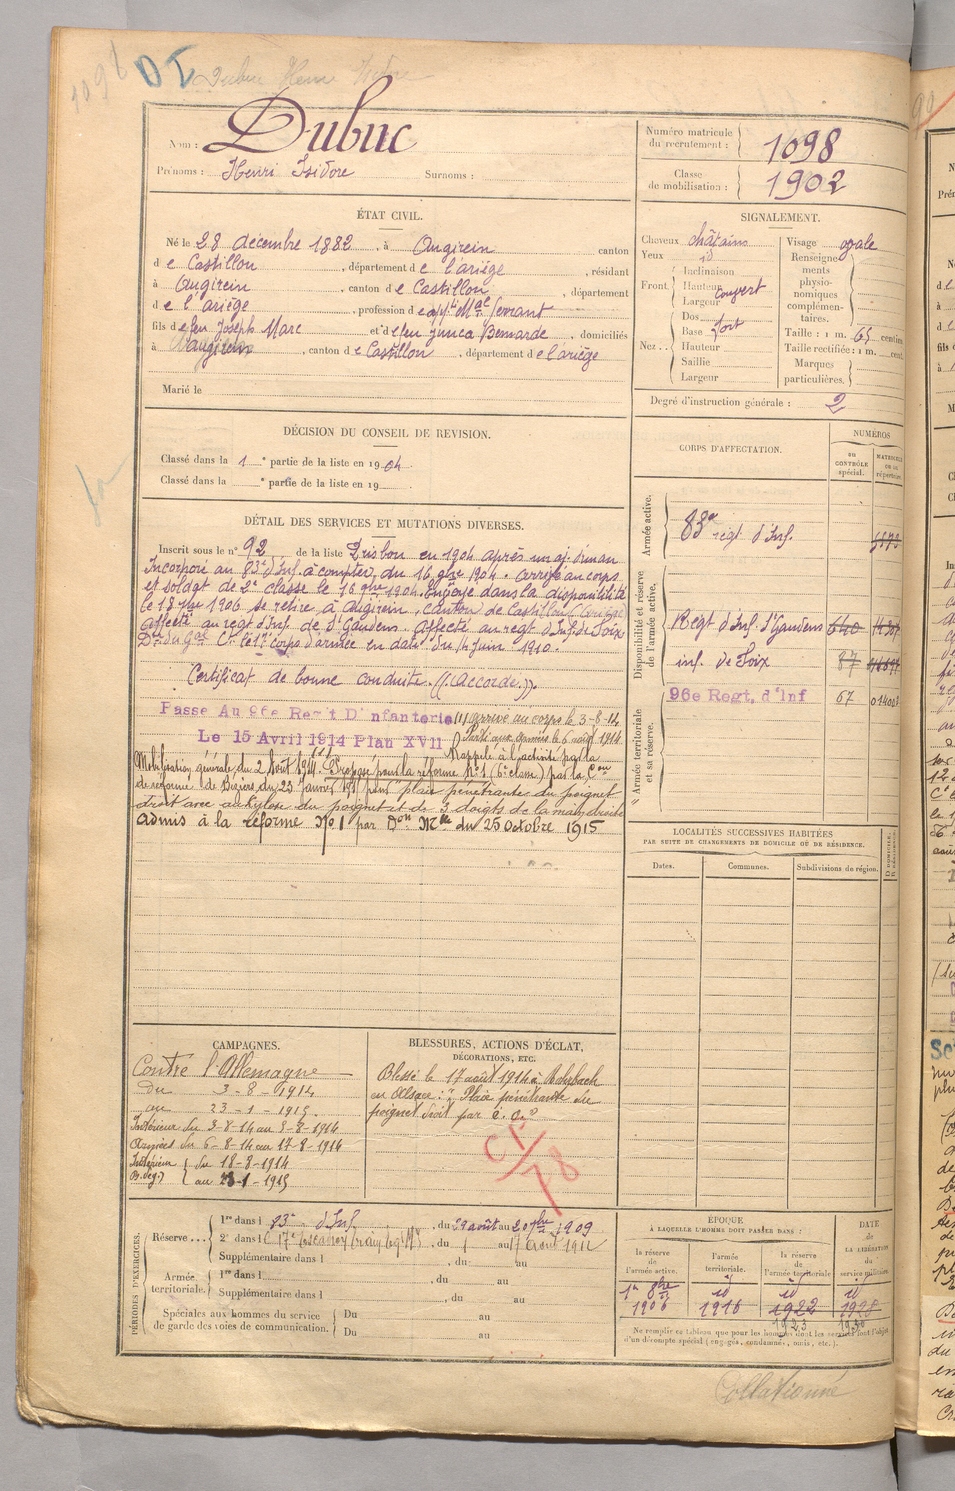 1098 DI Dubuc Henri Isidore
Nom : Dubuc
Prénoms : Henri Isidore Surnoms :
Numéro matricule du recrutement : 1098
Classe de mobilisation : 1902
ÉTAT CIVIL.
Né le 28 décembre 1882, à Augirein canton
de Castillon, département de l'ariége, résidant
à Augirein, canton de Castillon, département
de l'ariége, profession de
fils de feu Joseph Marc et de feu Junca Bernarde, domiciliés
à augirein, canton de Castillon, département de l'ariége
Marié le
SIGNALEMENT.
Cheveux châtains
Yeux id
Front : Inclinaison
Hauteur couvert
Largeur
Nez : Dos
Base fort
Hauteur
Saillie
Largeur
Visage ovale
Renseignements physionomiques complémentaires.
Taille : 1 m. 65 centim
Taille rectifiée : 1 m. cent.
Marques particulières.
Degré d'instruction générale : 2
DÉCISION DU CONSEIL DE REVISION.
Classé dans la 1e partie de la liste en 1904
Classé dans la e partie de la liste en 19
CORPS D'AFFECTATION.
NUMÉROS
AU CONTRÔLE spécial.
MATRICULE OU AU répertoire.
Armée active.
83e regt d'Inf.
Disponibilité et réserve de l'armée active.
Régt d'Inf. St Gaudens 640
inf. de Foix 87
Armée territoriale et sa réserve.
96e Regt. d'Inf 67
DÉTAIL DES SERVICES ET MUTATIONS DIVERSES.
Inscrit sous le n° 92 de la liste en 1904 après un aj.
Incorporé au 83e d'Inf. à compter du 16 9bre 1904. arrivé au corps
et soldat de 2e classe le 16 9bre 1904. Envoyé dans la disponibilité
le 18 1906 se retire à Augirein, canton de Castillon (Ariège)
affecté au regt d'Inf. de St Gaudens. Affecté au regt d'Inf. de Foix
Don du Gal Ct le 17e corps d'armée en date du 14 juin 1910.
Certificat de bonne conduite. ((Accordé.)).
Passe Au 96e Regt D'Infanterie
Le 15 Avril 1914 Plan XVII
(1) arrivé au corps le 3-8-14
Parti aux armées le 6 août 1914
Rappelé à l'activité par la
Mobilisation générale du 2 Août 1914. (1) Proposé pour la réforme N° 1 (6e classe) par la Con
de réforme de Béziers du 23 Janvier pour "plaie pénétrante du poignet
droit avec ankylose du poignet et de 3 doigts de la main droite
admis à la réforme N°1 par Don Mlle du 25 octobre 1915
LOCALITÉS SUCCESSIVES HABITÉES
PAR SUITE DE CHANGEMENTS DE DOMICILE OU DE RÉSIDENCE.
Dates. Communes. Subdivisions de région. D DOMICILE. R RÉSIDENCE.
CAMPAGNES.
Contre l'Allemagne
du 3-8-1914
au 23-1-1915.
Intérieur du 3-8-14 au 5-8-1914
Armées du 6-8-14 au 17-8-1914
Intérieur du 18-8-1914
au 23-1-1915
BLESSURES, ACTIONS D'ÉCLAT,
DÉCORATIONS, ETC.
Blessé le 17 août 1914 à
en Alsace : "Plaie pénétrante du
poignet droit par é. o."
PÉRIODES D'EXERCICES.
Réserve... 1re dans l 83e d'Inf. , du 29 août au 20 7bre 1909
2e dans l , du 1 au 17 Aout 1912
Supplémentaire dans l , du au
Armée territoriale. 1re dans l , du au
Supplémentaire dans l , du au
Spéciales aux hommes du service de garde des voies de communication. Du au
Du au
ÉPOQUE
À LAQUELLE L'HOMME DOIT PASSER DANS :
la réserve de l'armée active.
l'armée territoriale.
la réserve de l'armée territoriale
DATE de LA LIBÉRATION du service militaire.
1er 8bre 1906
id 1916
id 1922
id 1928
1923
Ne remplir ce tableau que pour les hommes dont les services font l'objet
d'un décompte spécial (engagés, condamnés, omis, etc.).
Collationné